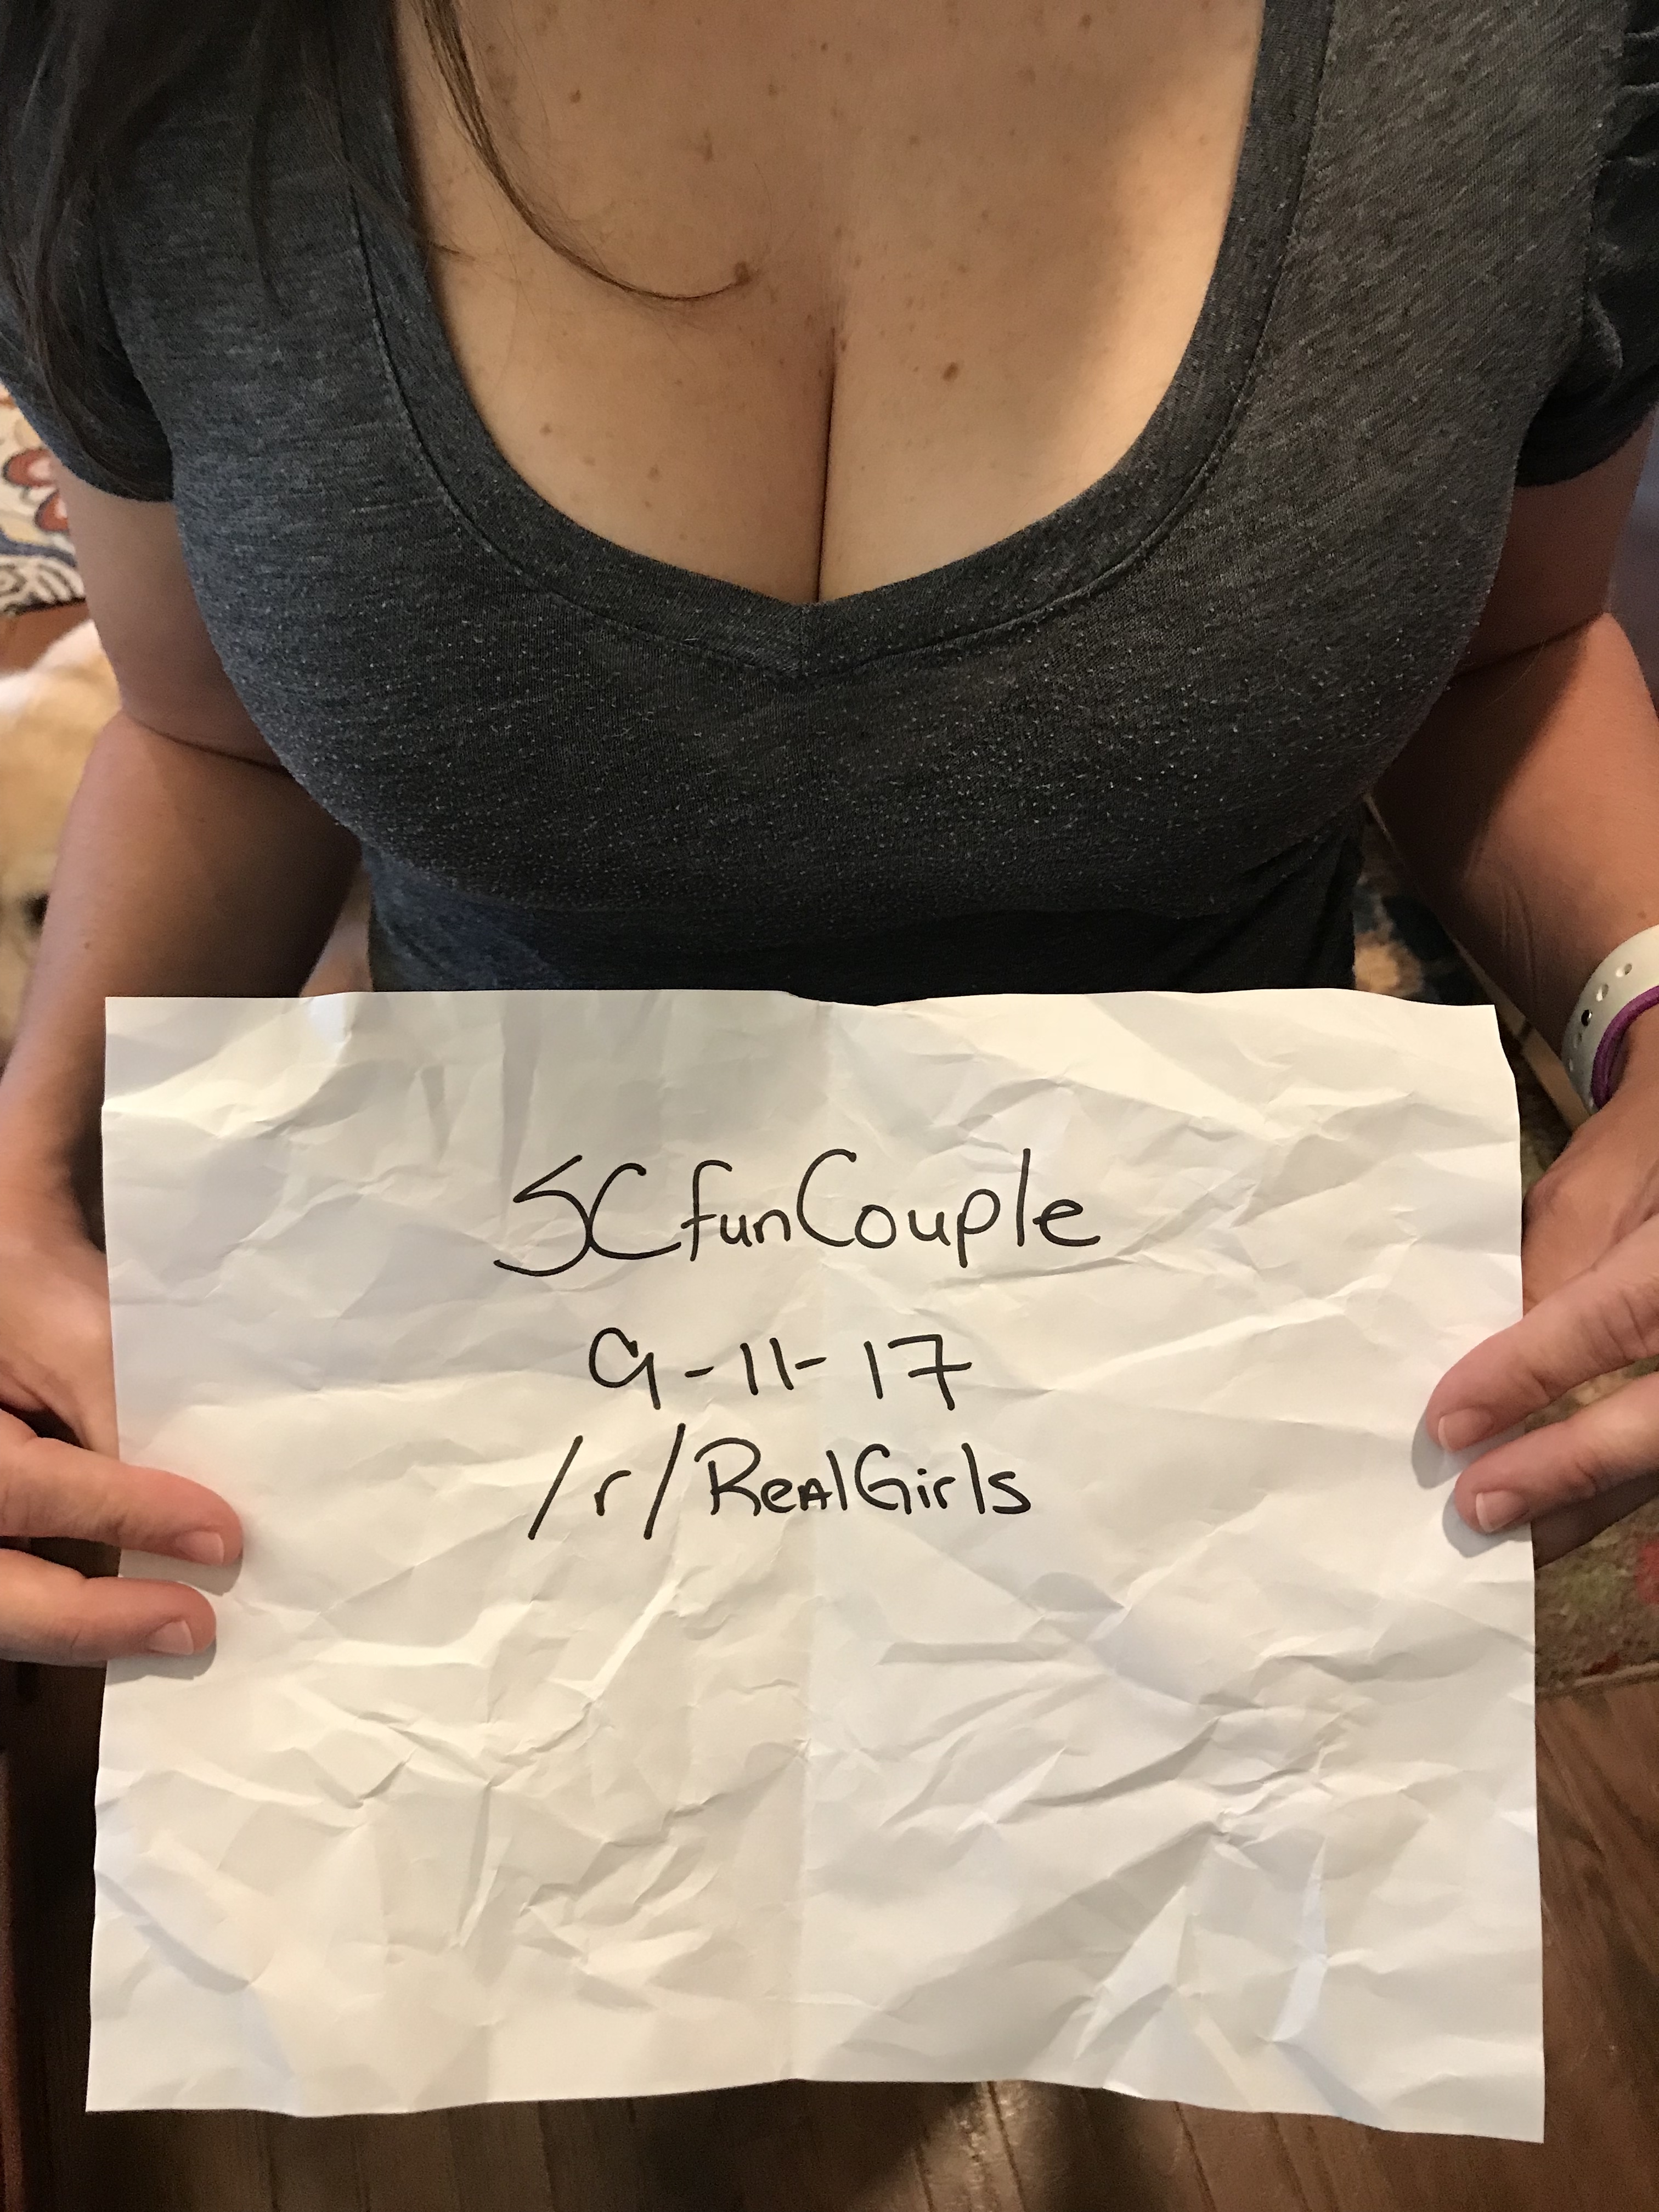 SCfunCouple
9-11-17
/r/RealGirls